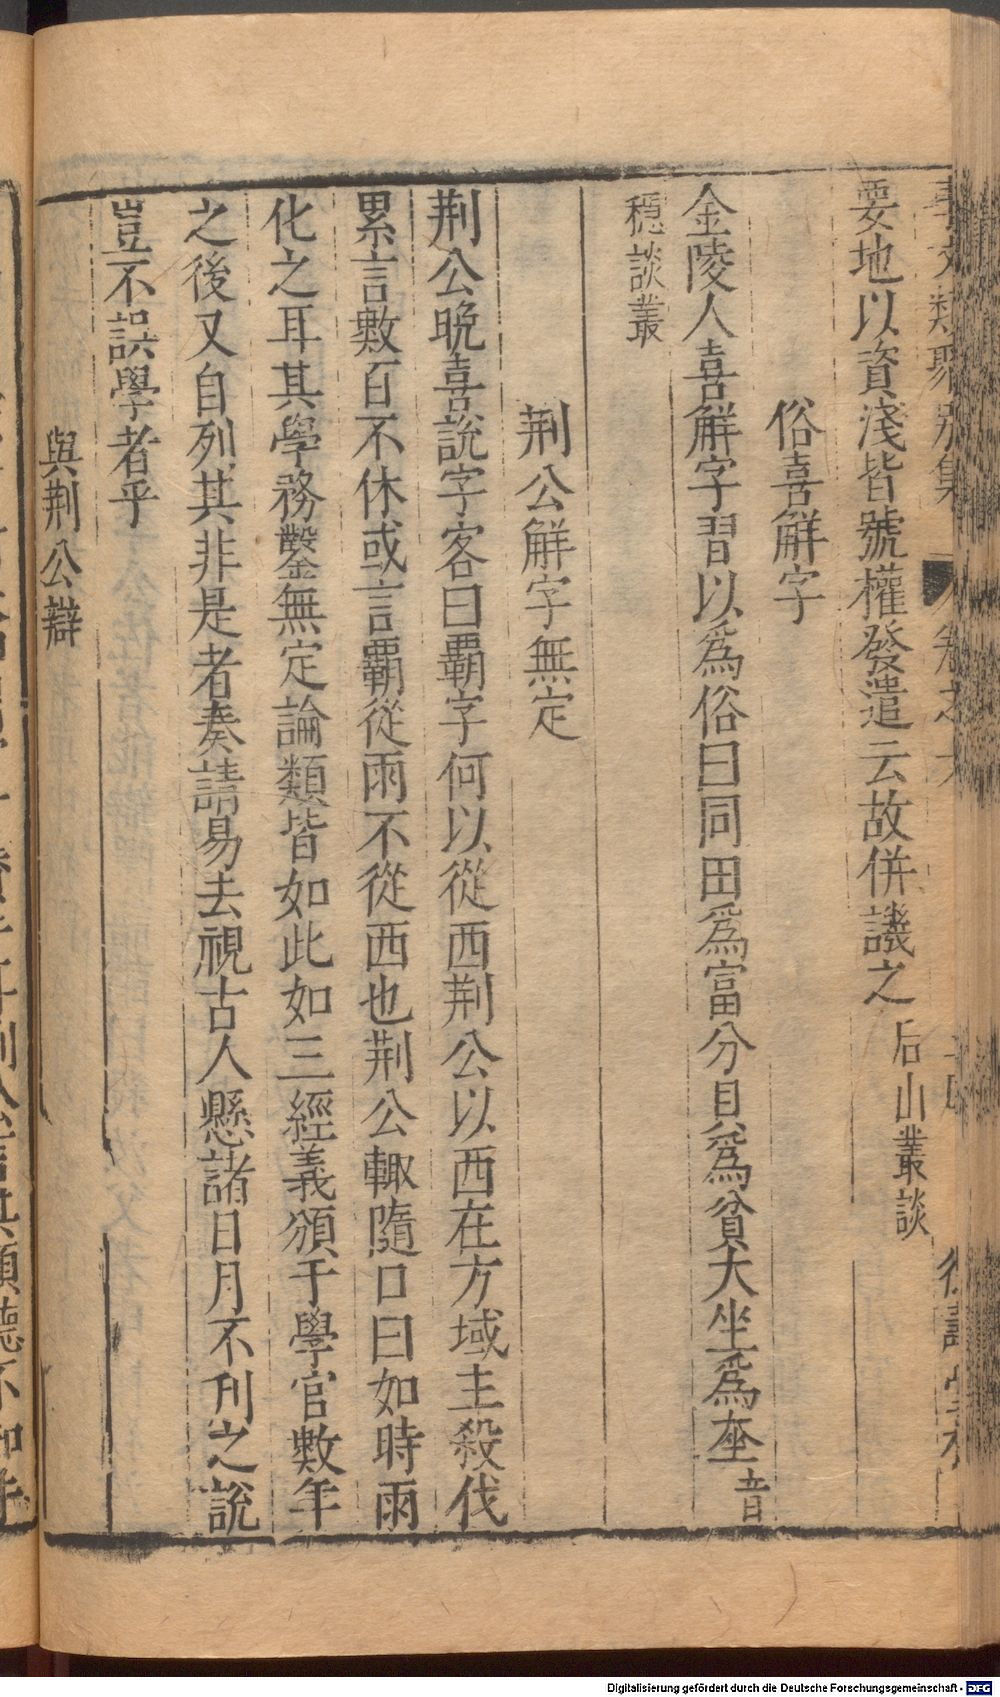 事文類聚別集　卷之六
要地以資淺皆號權發遣云故併議之后山叢談
俗喜解字
金陵人喜解字習以為俗曰同田為富分目為貧大坐為㘸音
穩談叢
荆公解字無定
荆公晚喜說字客曰覇字何以從西荆公以西在方域主殺伐
累言數百不休或言覇從雨不從西也荆公輙隨口曰如時雨
化之耳其學務鑿無定論類皆如此如三經義頒于學官數年
之後又自列其非是者奏請易去視古人懸諸日月不刊之說
豈不誤學者乎
與荆公辯
Digitalisierung gefördert durch die Deutsche Forschungsgemeinschaft - DFG